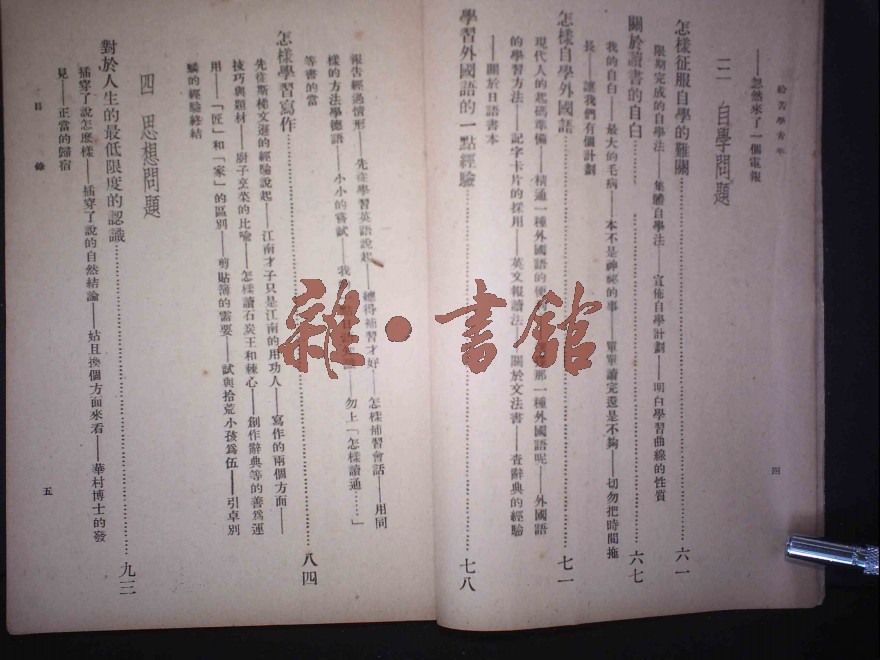 給苦學青年
——忽然來了一個電報
三 自學問題
怎樣征服自學的難關……六一
限期完成的自學法——集體自學法——宣佈自學計劃——明白學習曲線的性質
關於讀書的自白……六七
我的自白——最大的毛病——本不是神祕的事——單單讀完還是不夠——切勿把時間拖
長——讓我們有個計劃
怎樣自學外國語……七一
現代人的起碼準備——精通一種外國語的便——那一種外國語呢——外國語
的學習方法——記字卡片的採用——英文報讀法——關於文法書——查辭典的經驗
——關於日語書本
學習外國語的一點經驗……七八
四
報告經過情形——先從學習英語說起——總得補習才好——怎樣補習會話——用同
樣的方法學德語——小小的嘗試——我——勿上「怎樣讀通……」
等書的當
怎樣學習寫作……八四
先從斯梯文遜的經驗說起——江南才子只是江南的用功人——寫作的兩個方面——
技巧與題材——廚子烹菜的比喻——怎樣讀石炭王和棘心——創作辭典等的善爲運
用——「匠」和「家」的區別——剪貼簿的需要——試與拾荒小孩爲伍——引卓別
麟的經驗終結
四 思想問題
對於人生的最低限度的認識……九三
插穿了說怎麼樣——插穿了說的自然結論——姑且換個方面來看——華村博士的發
見——正當的歸宿
目 錄
五
雜·書館